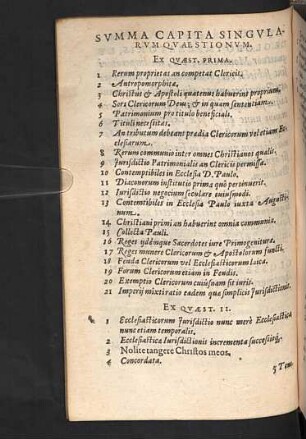 SVMMA CAPITA SINGVLA-
RVM QVAESTIONVM.
EX QVÆST. PRIMA.
1 Rerum proprietas an competat Clericis.
2 Antropomorphitæ.
3 Christus & Apostoli quatenus habuerint proprium.
4 Sors Clericorum Deus, & in quam sententiam.
5 Patrimonium pro titulo beneficiali.
6 Tituli necessitas.
7 An tributum debeant prædia Clericorum vel etiam Ec-
clesiarum.
8 Rerum communio inter omnes Christianos qualis.
9 Iurisdictio Patrimonialis an Clericis permissa.
10 Contemptibiles in Ecclesia D. Paulo.
11 Diaconorum institutio prima quò pertinuerit.
12 Iurisdictio negocium seculare cuiusmodi.
13 Contemtibiles in Ecclesia Paulo iuxta Augusti-
num.
14 Christiani primi an habuerint omnia communia.
15 Collecta Pauli.
16 Reges ijdémque Sacerdotes iure Primogenitura.
17 Reges munere Clericorum & Apostolorum functi.
18 Feuda Clericorum vel Ecclesiasticorum Laica.
19 Forum Clericorum etiam in Feudis.
20 Exemptio Clericorum cuiusnam sit iuris.
21 Imperij mixti ratio eadem quæ simplicis Iurisdictionis.
EX QVÆST. II.
1 Ecclesiasticorum Iurisdictio nunc merè Ecclesiastica
nunc etiam temporalis.
2 Ecclesiasticæ Iurisdictionis incrementa successiuè.
3 Nolite tangere Christos meos.
4 Concordata.